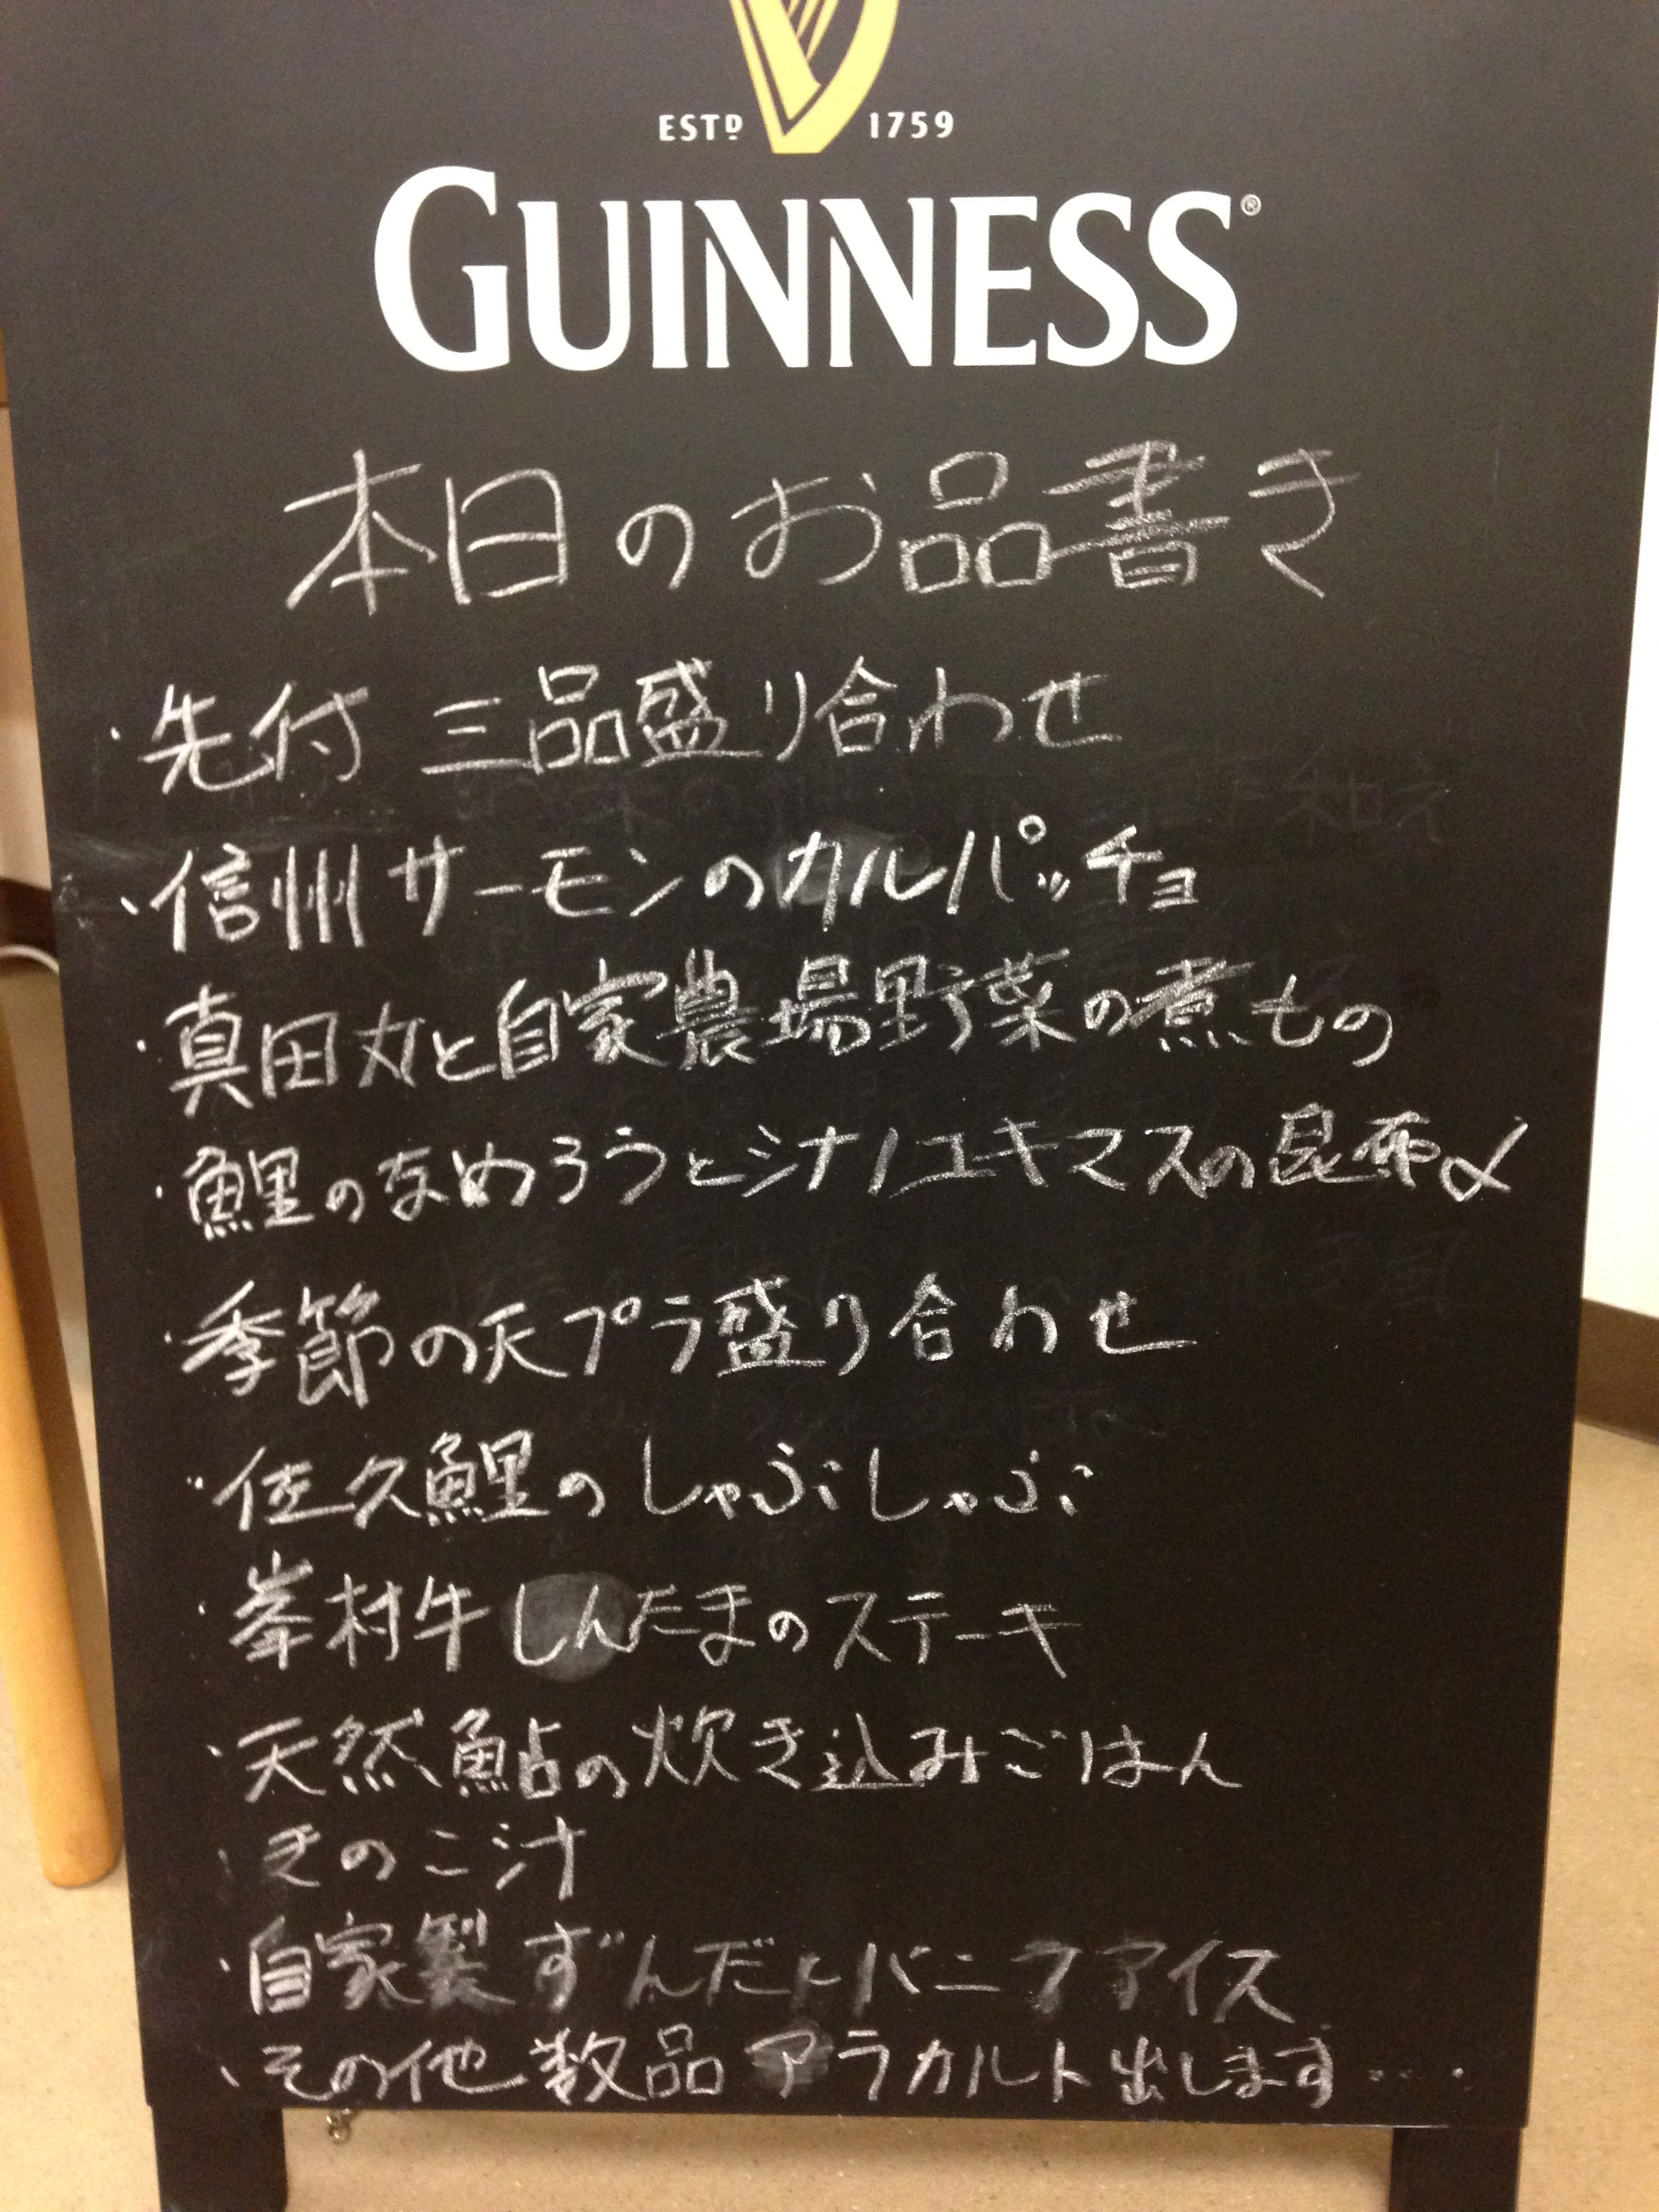 ESTD 1759
GUINNESS®
本日のお品書き
・先付 三品盛り合わせ
・信州サーモンのカルパッチョ
・真田丸と自家農場野菜の煮もの
・鯉のなめろうとシナノユキマスの昆布〆
・季節の天プラ盛り合わせ
・佐久鯉のしゃぶしゃぶ
・峯村牛しんたまのステーキ
・天然鮎の炊き込みごはん
・きのこ汁
・自家製ずんだとバニラアイス
・その他数品アラカルト出します‥‥